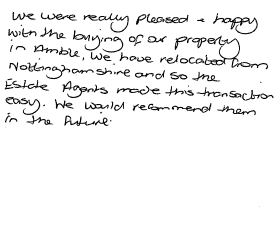 We were really pleased + happy
with the buying of our property
in Amble, we have relocated from
Nottinghamshire and so the
Estate Agents made this transaction
easy. We would recommend them
in the future.